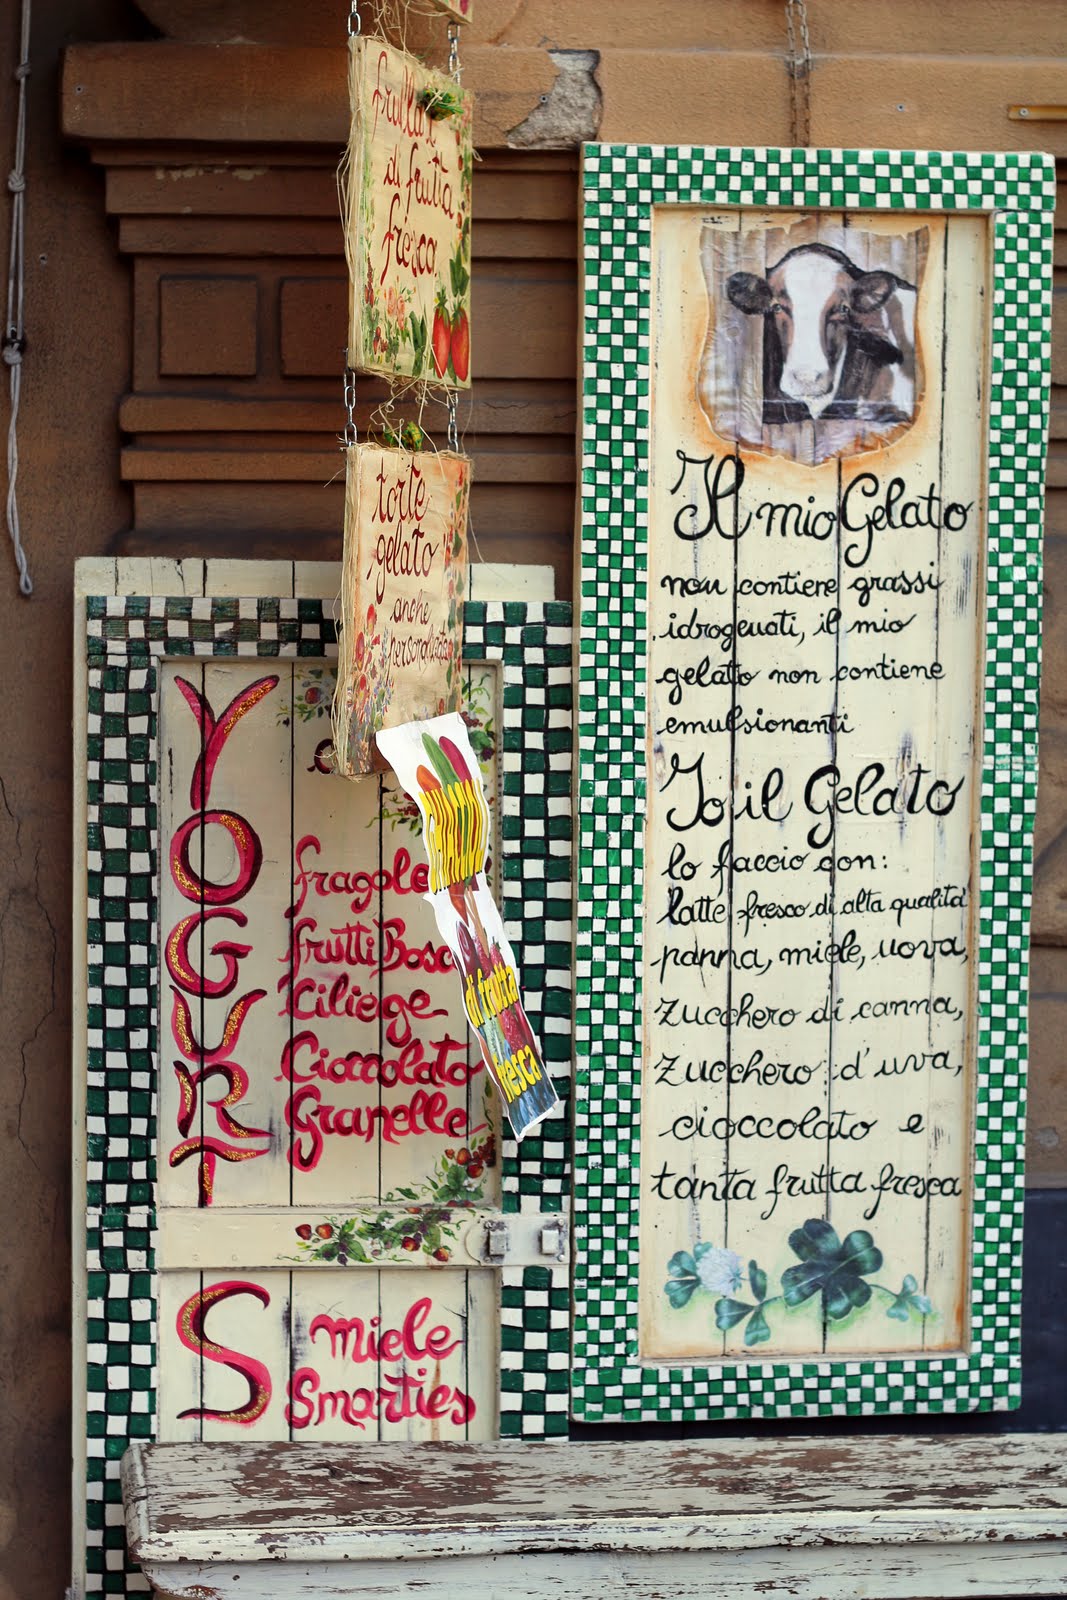 frullati
di frutta
fresca
torte
gelato
anche
personalizzate
YOGURT
fragole
frutti Bosc
Ciliege
Cioccolato
Granelle
S
miele
Smarties
di frutta
fresca
Il mio Gelato
non contiene grassi
idrogenati, il mio
gelato non contiene
emulsionanti
Io il Gelato
lo faccio con:
latte fresco di alta qualità
panna, miele, uova,
zucchero di canna,
zucchero d'uva,
cioccolato e
tanta frutta fresca